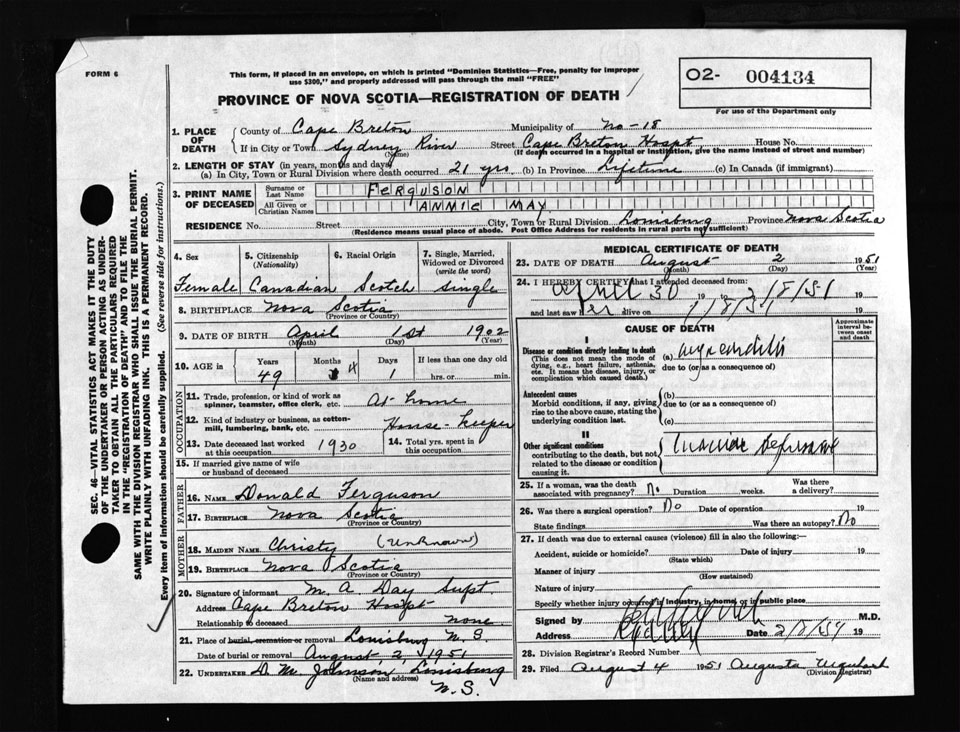 FORM 6
This form, if placed in an envelope, on which is printed "Dominion Statistics—Free, penalty for improper
use $300," and properly addressed will pass through the mail "FREE"
O2- 004134
For use of the Department only
PROVINCE OF NOVA SCOTIA—REGISTRATION OF DEATH
1. PLACE OF DEATH County of Cape Breton Municipality of No-18
If in City or Town Sydney River (Name) Street Cape Breton Hospt House No.
(If death occurred in a hospital or institution, give the name instead of street and number)
2. LENGTH OF STAY (in years, months and days)
(a) In City, Town or Rural Division where death occurred 21 yrs (b) In Province Lifetime (c) In Canada (if immigrant)
3. PRINT NAME OF DECEASED
Surname or Last Name FERGUSON
All Given or Christian Names ANNIE MAY
RESIDENCE No. Street City, Town or Rural Division Louisburg Province Nova Scotia
(Residence means usual place of abode. Post Office Address for residents in rural parts not sufficient)
4. Sex Female
5. Citizenship (Nationality) Canadian
6. Racial Origin Scotch
7. Single, Married, Widowed or Divorced (write the word) single
8. BIRTHPLACE Nova Scotia
(Province or Country)
9. DATE OF BIRTH April 1st 1902
(Month) (Day) (Year)
10. AGE in Years Months Days If less than one day old
49 4 1 hrs. or min.
OCCUPATION
11. Trade, profession, or kind of work as spinner, teamster, office clerk, etc. At home
12. Kind of industry or business, as cotton-mill, lumbering, bank, etc. House-keeper
13. Date deceased last worked at this occupation 1930
14. Total yrs. spent in this occupation
15. If married give name of wife or husband of deceased
FATHER
16. NAME Donald Ferguson
17. BIRTHPLACE Nova Scotia
(Province or Country)
MOTHER
18. MAIDEN NAME Christy (Unknown)
19. BIRTHPLACE Nova Scotia
(Province or Country)
20. Signature of informant M. A. Day Supt.
Address Cape Breton Hospt
Relationship to deceased none
21. Place of burial, cremation or removal Louisburg N. S.
Date of burial or removal August 2, 1951
22. UNDERTAKER D. M. Johnson, Louisburg
(Name and address)
N. S.
MEDICAL CERTIFICATE OF DEATH
23. DATE OF DEATH August 2 1951
(Month) (Day) (Year)
24. I HEREBY CERTIFY that I attended deceased from:
April 30 19 to 2/8/51 19
and last saw her alive on 1/8/51 19
CAUSE OF DEATH
Approximate interval between onset and death
I
Disease or condition directly leading to death
(This does not mean the mode of dying, e.g., heart failure, asthenia, etc. It means the disease, injury, or complication which caused death.)
(a) Myocarditis
due to (or as a consequence of)
Antecedent causes
Morbid conditions, if any, giving rise to the above cause, stating the underlying condition last.
(b)
due to (or as a consequence of)
(c)
II
Other significant conditions
contributing to the death, but not related to the disease or condition causing it.
25. If a woman, was the death associated with pregnancy? No Duration weeks. Was there a delivery?
26. Was there a surgical operation? No Date of operation 19
State findings Was there an autopsy? No
27. If death was due to external causes (violence) fill in also the following:—
Accident, suicide or homicide? Date of injury 19
(State which)
Manner of injury
(How sustained)
Nature of injury
Specify whether injury occurred in industry, in home, or in public place
Signed by M.D.
Address Sydney Date 2/8/51 19
28. Division Registrar's Record Number
29. Filed August 4 1951 Augusta Urquhart
(Division Registrar)
SEC. 46—VITAL STATISTICS ACT MAKES IT THE DUTY
OF THE UNDERTAKER OR PERSON ACTING AS UNDER-
TAKER TO OBTAIN ALL THE PARTICULARS REQUIRED
IN THE "REGISTRATION OF DEATH" AND TO FILE THE
SAME WITH THE DIVISION REGISTRAR WHO SHALL ISSUE THE BURIAL PERMIT.
WRITE PLAINLY WITH UNFADING INK. THIS IS A PERMANENT RECORD.
Every item of information should be carefully supplied. (See reverse side for instructions.)